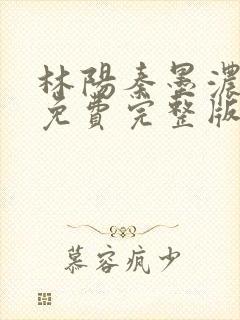 林陽秦墨濃
免費完整版
慕容疯少